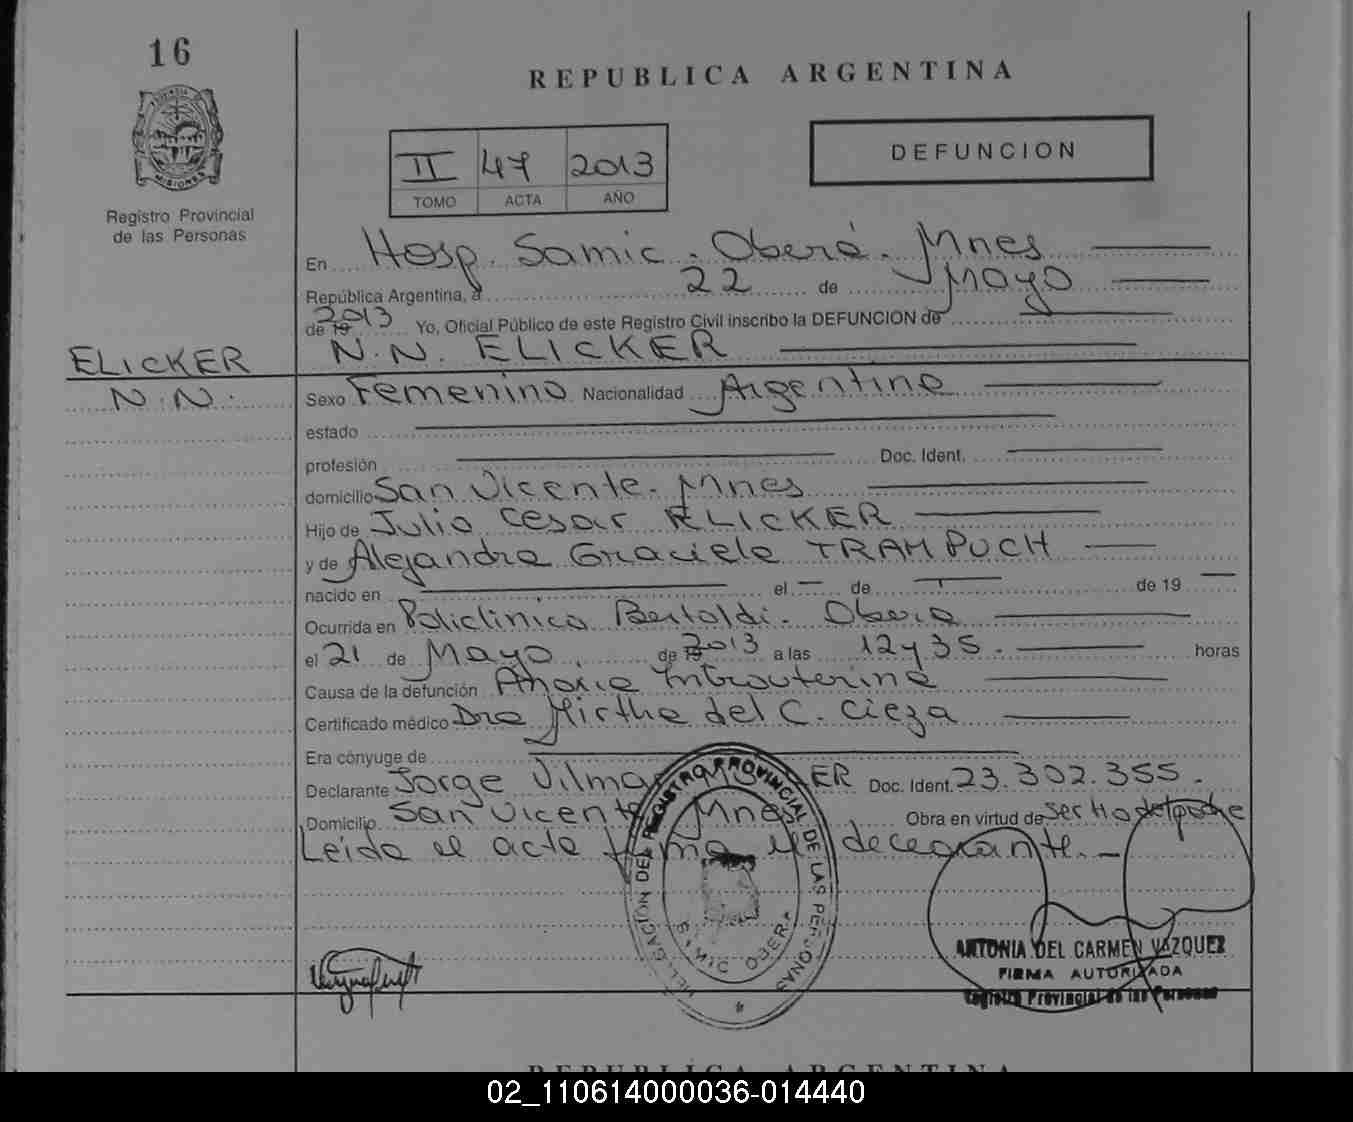 16
REPUBLICA ARGENTINA
PROVINCIA
MISIONES
Registro Provincial
de las Personas
II 47 2013
TOMO ACTA AÑO
DEFUNCION
En Hosp. Samic. Oberá. Mnes
República Argentina, a 22 de Mayo
de 19 2013 Yo, Oficial Público de este Registro Civil inscribo la DEFUNCION de
ELICKER
N.N.
N.N. ELICKER
Sexo Femenino Nacionalidad Argentina
estado
profesión Doc. Ident.
domicilio San Vicente. Mnes
Hijo de Julio Cesar ELICKER
y de Alejandra Graciela TRAMPUCH
nacido en el — de — de 19 —
Ocurrida en Policlinica Bertoldi. Oberá
el 21 de Mayo. de 19 2013 a las 12 y 35. horas
Causa de la defunción Anoxia Intrauterina
Certificado médico Dra Mirtha del C. Cieza
Era cónyuge de
Declarante Jorge Vilmar ER Doc. Ident. 23.302.355.
Domicilio San Vicente Mnes Obra en virtud de ser tio del padre
Leida el acta firma el declarante. —
DELEGACION DEL REGISTRO PROVINCIAL DE LAS PERSONAS
SAMIC OBERA
ANTONIA DEL CARMEN VAZQUEZ
FIRMA AUTORIZADA
Registro Provincial de las Personas
REPUBLICA ARGENTINA
02_110614000036-014440